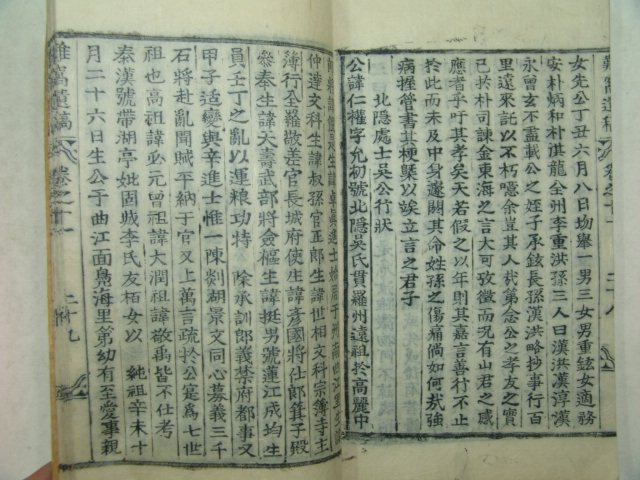 難窩遺稿 卷之十一 二八
女先公丁丑六月八日㘦舉一男三女男重鉉女適務
安朴炳和朴淇龍全州李重洪孫三人曰漢洪漢淳漢
永曾玄不盡載公之姪子承鉉長孫漢洪略抄事行百
里遠來託以不朽噫余豈其人哉第念公之孝友之實
已於朴司諫金東海之言大可攷徵而況有山君之感
應者乎吁其孝矣天若假之以年則其嘉言善行不止
於此而未及中身遽閼其命姓孫之傷痛倘如何哉强
病握管書其梗槩以竢立言之君子
北隱處士吳公行狀
公諱仁權字允初號北隱吳氏貫羅州遠祖於高麗中
仲達文科生諱叔孫官正郎生諱世相文科宗簿李主
簿行全羅敬差官長城府使生諱彥國將仕郎箕子殿
參奉生諱天壽武部將僉樞生諱挺男號蓮江成均生
員壬丁之亂以運粮功特 除承訓郎義禁府都事又
甲子适變與辛進士惟一陳剡湖景文同心募義三千
石將赴亂聞賊平納于官又上萬言疏於公寔爲七世
祖也高祖諱必元曾祖諱大潤祖諱敬禹皆不仕考
泰漢號帶湖亭妣固城李氏友栢女以 純祖辛未十
月二十六日生公于曲江面鳧海里第幼有至愛事親
難窩遺稿 卷之十一 二十九